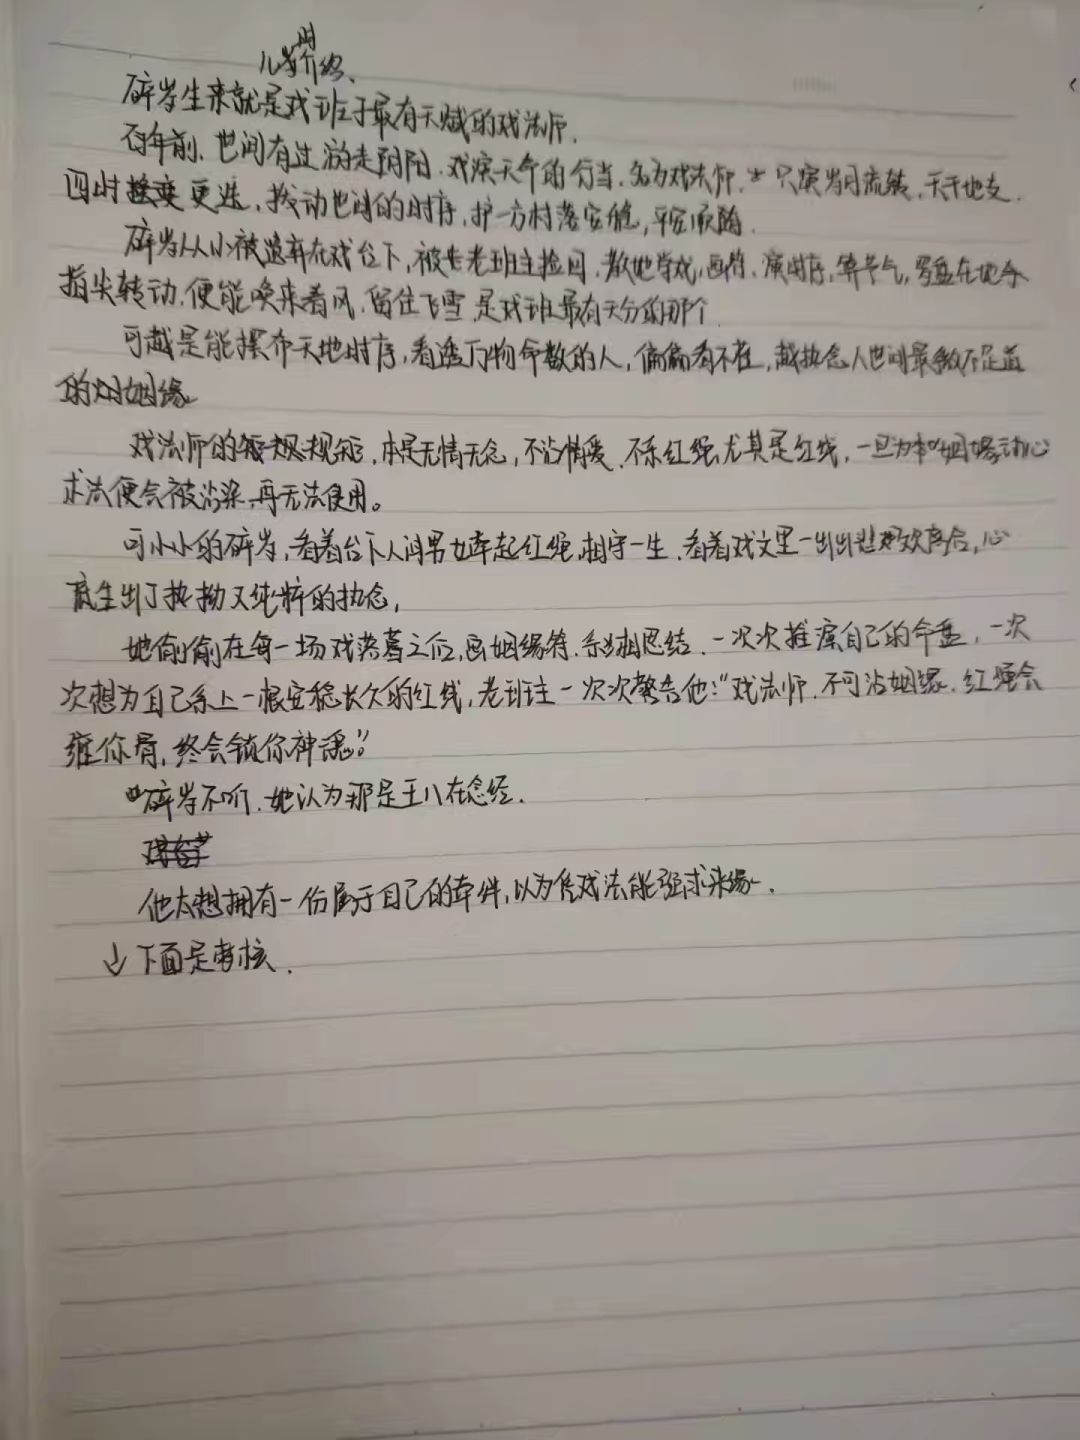 儿时介绍、
碎岁生来就是戏班子最有天赋的戏法师.
百年前.世间有过游走阴阳.戏演天命的行当.名为戏法师.只演岁月流转,天干地支.
四时更迭,拨动世间的时序,护一方村落安稳,平安顺遂.
碎岁从小被遗弃在戏台下,被老班主捡回.教她学戏,画符,演时序,算节气,罗盘在她手
指尖转动,便能唤来春风.留住飞雪.是戏班最有天分的那个.
可越是能摆布天地时序,看透万物命数的人,偏偏看不在,越执念人世间最微不足道
的姻缘
戏法师的规矩,本是无情无念,不沾情爱.不系红绳,尤其是红线,一旦为姻缘动心
术法便会被沾染,再无法使用。
可小小的碎岁,看着台下人间男女牵起红绳,相守一生.看着戏文里一出出悲欢离合,心
底生出了执拗又纯粹的执念,
她偷偷在每一场戏落幕之后,画姻缘符.系相思结.一次次推演自己的命盘,一次
次想为自己系上一根安稳长久的红线,老班主一次次警告他:"戏法师.不可沾姻缘.红绳会
缠你骨,终会锁你神魂"
碎岁不听.她认为那是王八在念经.
他太想拥有一份属于自己的牵绊,以为凭戏法能强求来缘.
↓下面是考核.